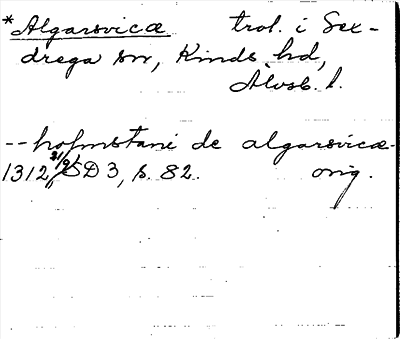 *Algarsvicæ trol. i Sex-
drega sn, Kinds hd,
Älvsb. l.
-- holmstani de algarsvicæ
1312 31/9 SD 3, s. 82. orig.